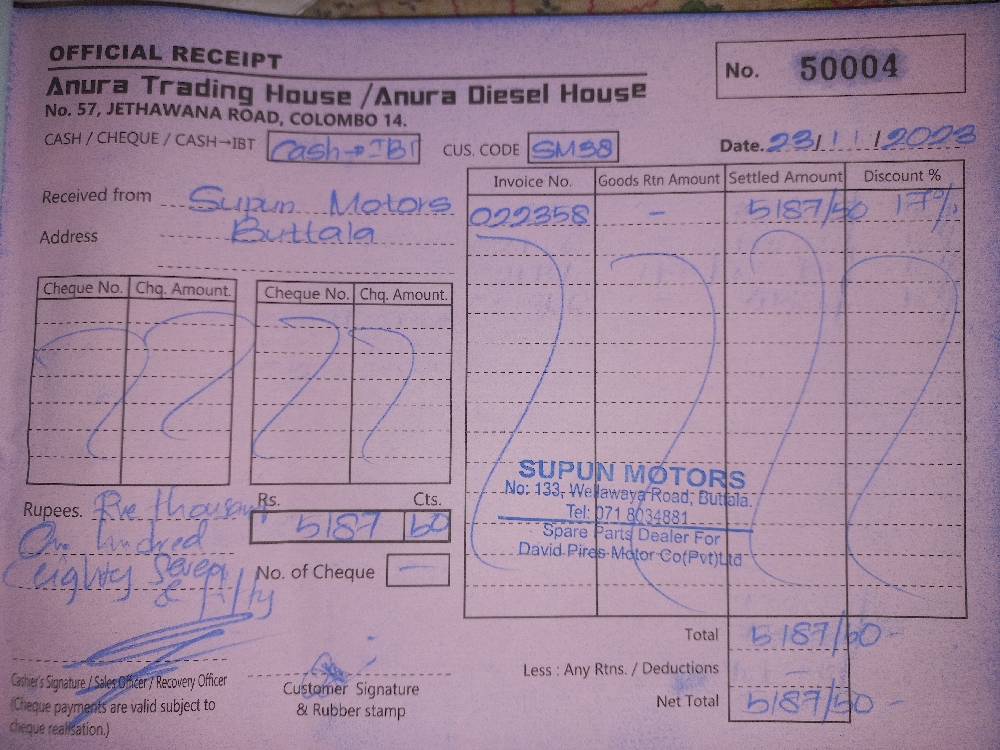 OFFICIAL RECEIPT
Anura Trading House /Anura Diesel House
No. 57, JETHAWANA ROAD, COLOMBO 14.
No. 50004
CASH / CHEQUE / CASH→IBT Cash→IBT CUS. CODE SM38 Date. 23/11/2023
Received from Supun Motors
Address Buttala
Invoice No. Goods Rtn Amount Settled Amount Discount %
022358 - 5187/50 17%
Cheque No. Chq. Amount. Cheque No. Chq. Amount.
Rupees. Five thousand
One hundred
eighty Seven
& fifty
Rs. Cts.
5187 50
No. of Cheque -
SUPUN MOTORS
No: 133, Wellawaya Road, Buttala.
Tel: 071 8034881
Spare Parts Dealer For
David Pires Motor Co(Pvt)Ltd
Total 5187/50 -
Less : Any Rtns. / Deductions -
Net Total 5187/50 -
Cashier's Signature / Sales Officer / Recovery Officer
(Cheque payments are valid subject to
cheque realisation.)
Customer Signature
& Rubber stamp